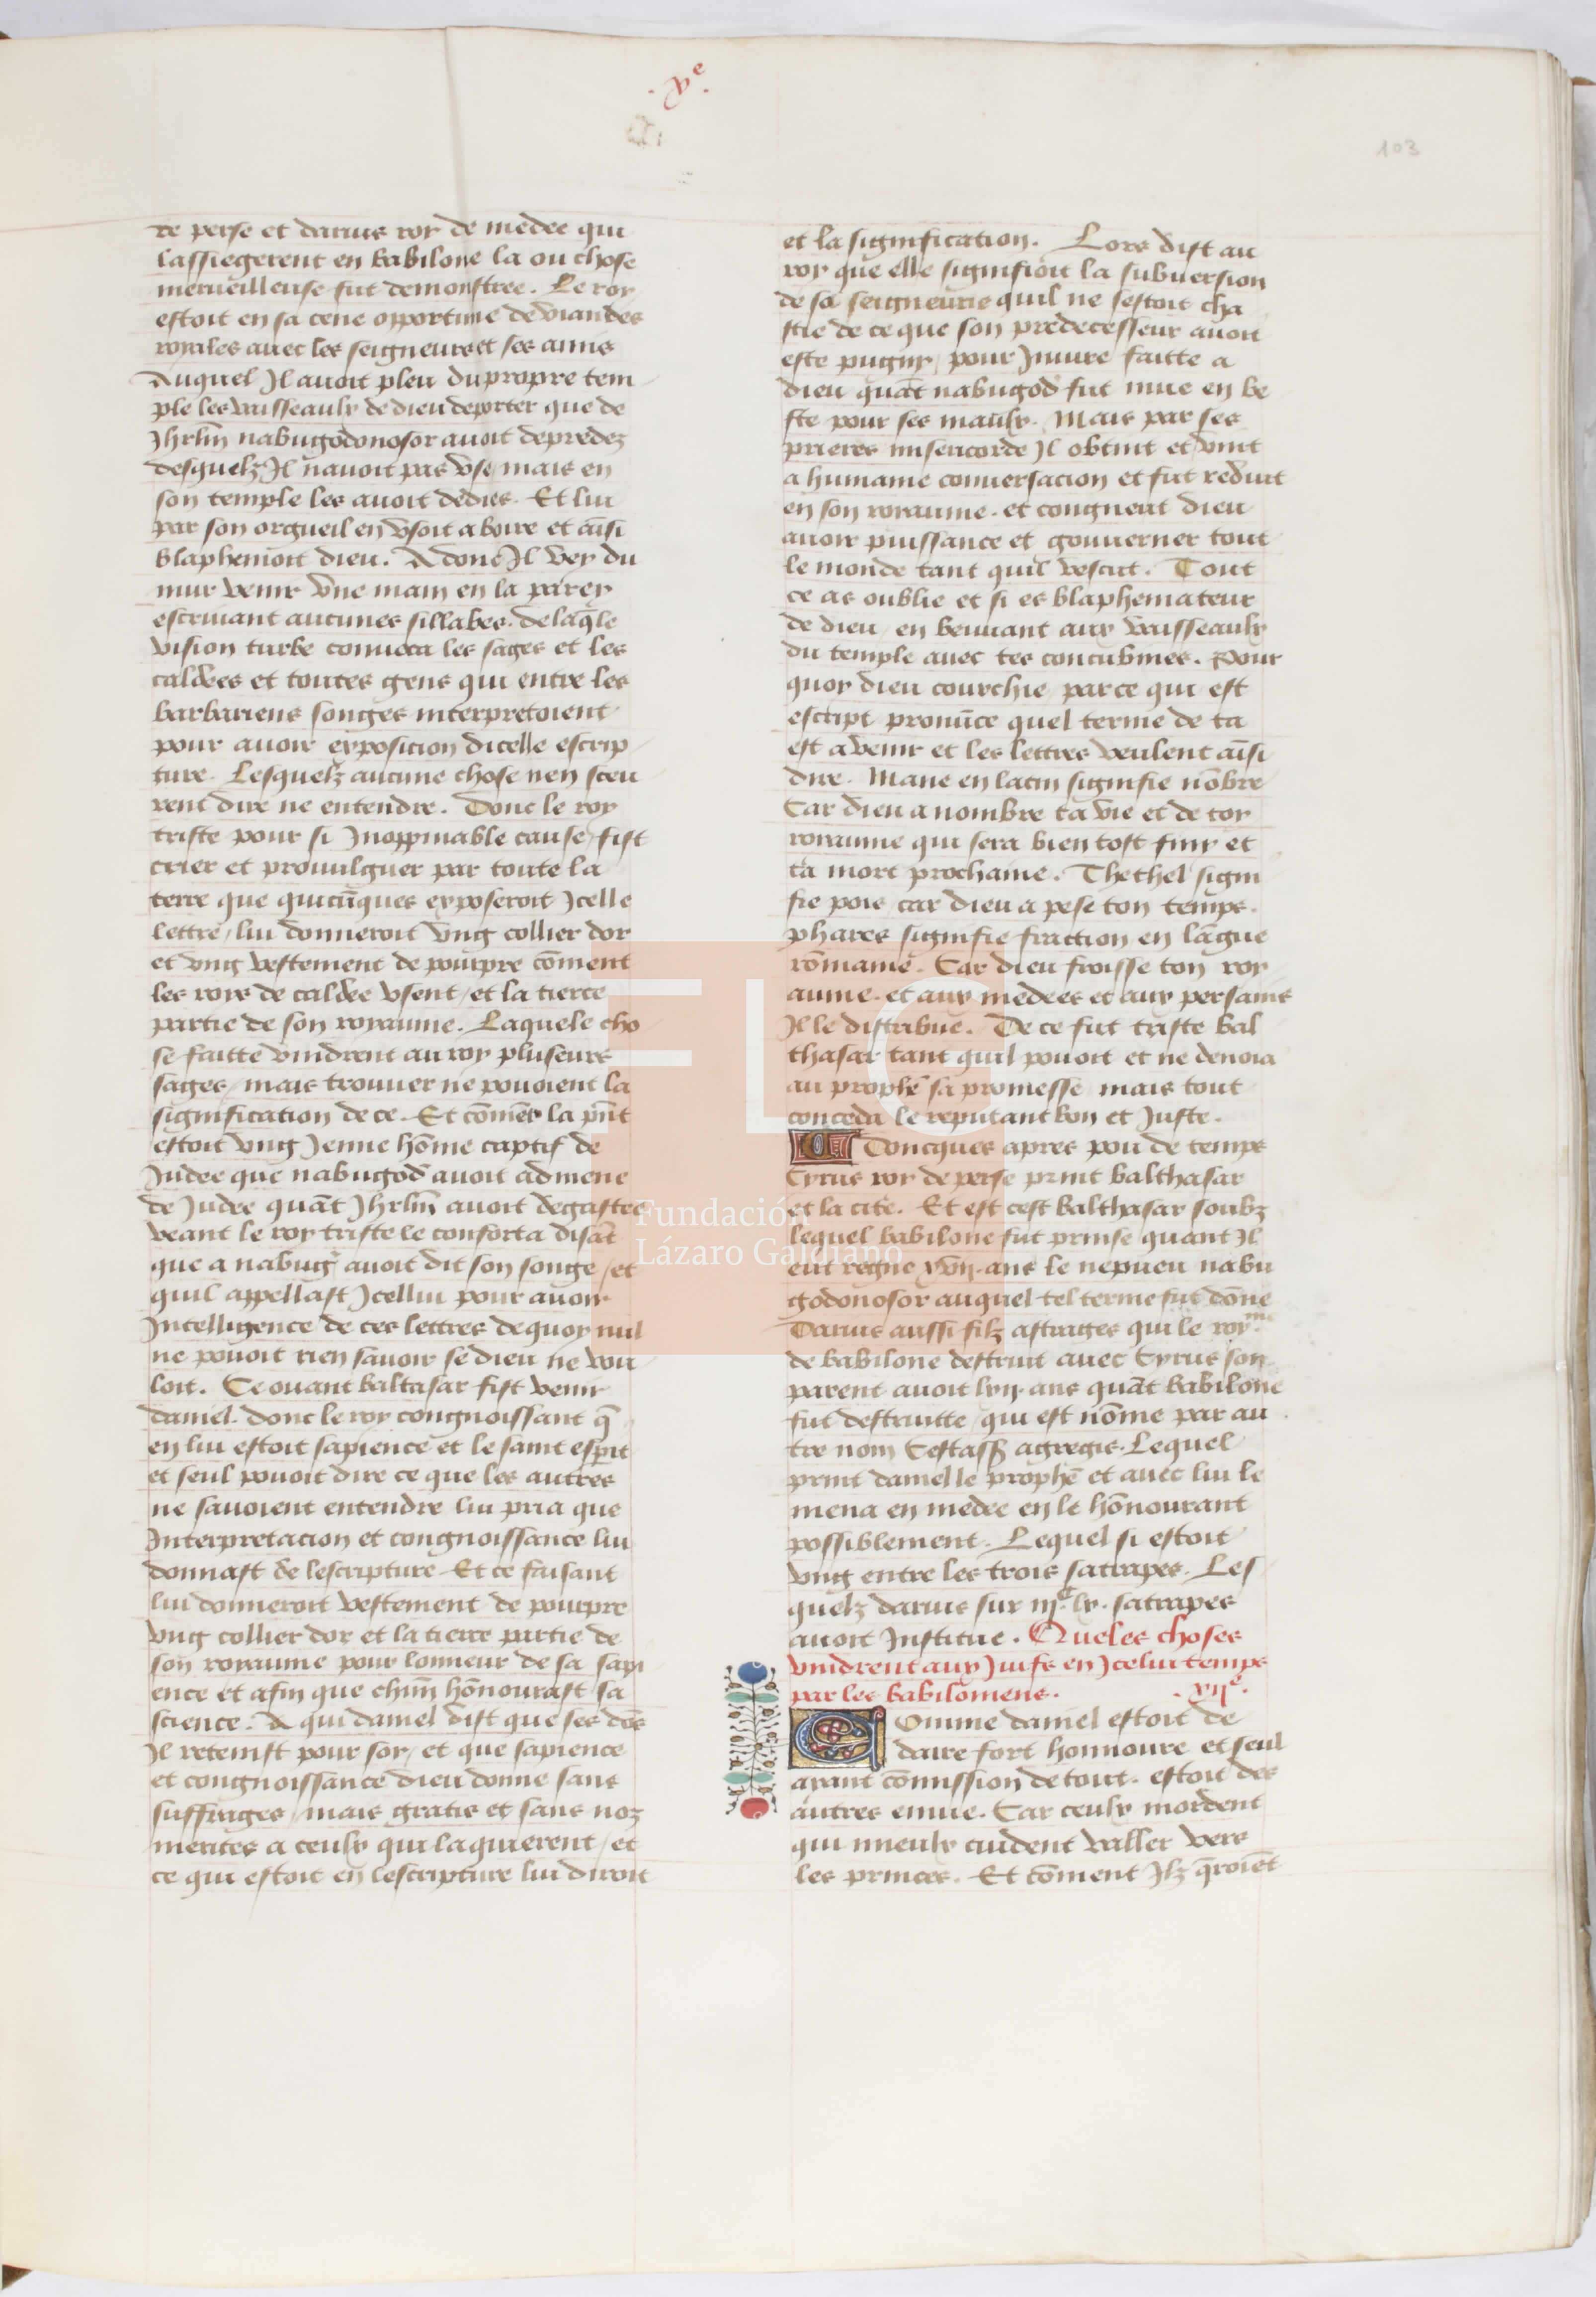 .xe.
103
re perse et darius roy de medee qui
lassiegerent en babilone la ou chose
merueilleuse fut demonstree. Le roy
estoit en sa cene opportune de viandes
royales auec les seigneurs et ses amis
Auquel Il auoit pleu du propre tem
ple les vaisseaulx de dieu deporter que de
Jhrlm̄ nabugodonosor auoit depredez
desquelz Il nauoit pas vse mais en
son temple les auoit dedies. Et lui
par son orgueil en vsoit a boire et aīsi
blaphemoit dieu. A donc Il vey du
mur venir vne main en la parey
escriuant aucunes sillabes. de laq̄le
vision turbe conuoca les sages et les
caldees et toutes gens qui entre les
barbariens songes interpretoient
pour auoir exposicion dicelle escrip
ture. Lesquelz aucune chose nen sceu
rent dire ne entendre. Donc le roy
triste pour si Inoppinable cause / fist
crier et prouulguer par toute la
terre que quicūques exposeroit Icelle
lettre / lui donneroit vng collier dor
et vng vestement de pourpre cōment
les roys de caldee vsent / et la tierce
partie de son royaume. Laquele cho
se faitte vindrent au roy pluseurs
sages / mais trouuer ne pouoient la
signification de ce. Et cōment la p̄nt
estoit vng Jenne hōme captif de
Judee que nabugod̄ auoit admene
de Judee quāt Jhrlm̄ auoit degastee
veant le roy triste le conforta disāt
que a nabuḡ auoit dit son songe / et
quil appellast Icellui pour auoir
Intelligence de ces lettres de quoy nul
ne pouoit rien sauoir se dieu ne vou
loit. Ce ouant baltasar fist venir
daniel. donc le roy congnoissant q̄
en lui estoit sapience et le saint esp̄it
et seul pouoit dire ce que les autres
ne sauoient entendre lui pria que
Interpretacion et congnoissance lui
donnast de lescripture. Et ce faisant
lui donneroit vestement de pourpre
vng collier dor et la tierce partie de
son royaume pour lonneur de sa sapi
ence et afin que chūn hōnourast sa
science. A qui daniel dist que ses dōs
Il retenist pour soy / et que sapience
et congnoissance dieu donne sans
suffrages / mais gratis et sans noz
merites a ceulx qui la quierent / et
ce qui estoit en lescripture lui diroit
et la signification. Lors dist au
roy que elle signifioit la subuersion
de sa seigneurie quil ne sestoit cha
stie de ce que son predecesseur auoit
este pugny / pour Iniure faitte a
dieu quāt nabugod̄ fut mue en be
ste pour ses maulx. Mais par ses
prieres misericorde Il obtint et vint
a humaine conuersacion et fut reduit
en son royaume. et congneut dieu
auoir puissance et gouuerner tout
le monde tant quil vescut. Tout
ce as oublie et si es blaphemateur
de dieu / en beuuant aux vaisseaulx
du temple auec tes concubines. Pour
quoy dieu courchie / par ce qui est
escript pronūce quel terme de ta
est a venir et les lettres veulent aīsi
dire. Mane en latin signifie nōbre
Car dieu a nombre ta vie et de toy
royaume qui sera bien tost finy et
ta mort prochaine. Thethel signi
fie pois / car dieu a pese ton temps.
phares signifie fraction en lāgue
rōmaine. Car dieu froisse ton roy
aume. et aux medees et aux persains
Il le distribue. De ce fut triste bal
thasar tant quil pouoit et ne denoia
au prophē sa promesse / mais tout
conceda le reputant bon et Juste.
A Doncques apres pou de temps
Cyrus roy de perse print balthasar
et la cite. Et est cest balthasar soubz
lequel babilone fut prinse quant Il
eut regne xvij. ans le nepueu nabu
godonosor auquel tel terme fut dōne
Darius aussi filz astrages qui le roym̄e
de babilone destruit auec Cyrus son
parent auoit lxij. ans quāt babilone
fut destruitte / qui est nōme par au
tre nom agregis. Lequel
print daniel le prophē et auec lui le
mena en medee en le hōnourant
possiblement. Lequel si estoit
vng entre les trois satrapes. Les
quelz darius sur iijc. lx. satrapes
auoit Institue. Queles choses
vindrent aux Juifs en Icelui temps
par les babiloniens. .xije.
Comme daniel estoit de
daire fort honnoure et seul
ayant cōmission de tout. estoit des
autres enuie. Car ceulx mordent
qui mieulx cuident valler vers
les princes. Et cōment Ilz q̄roiēt
Fundación
Lázaro Galdiano
FLG